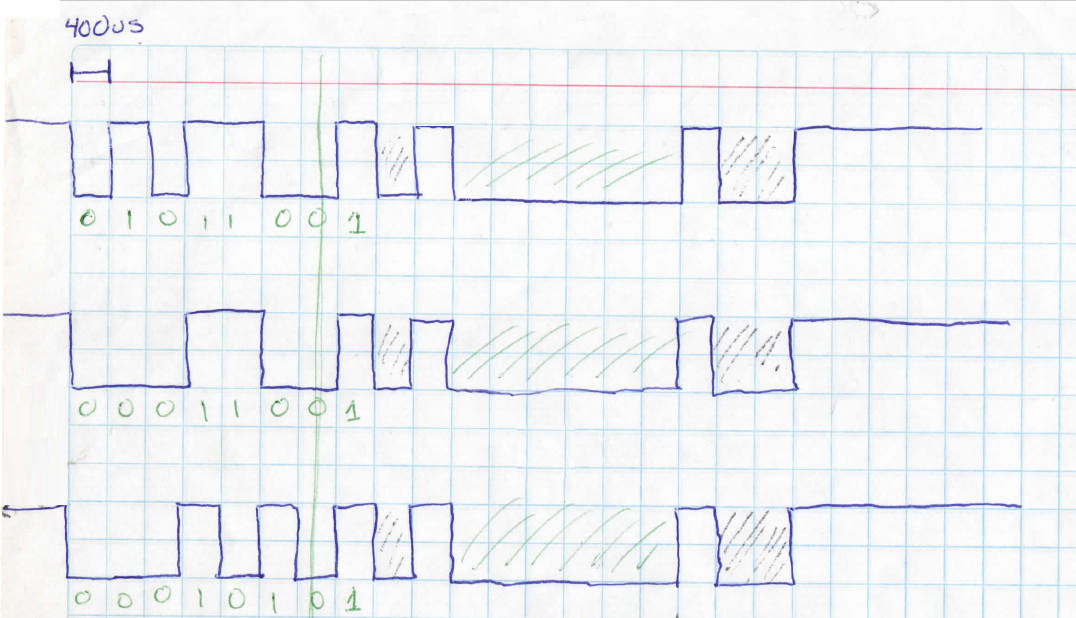 400us
0 1 0 1 1 0 0 1
0 0 0 1 1 0 0 1
0 0 0 1 0 1 0 1